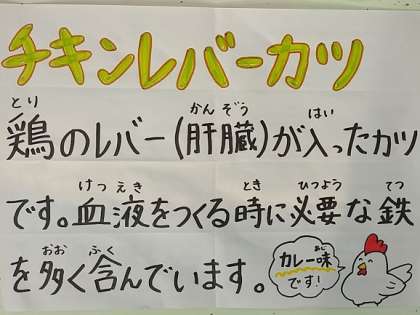 チキンレバーカツ
とり かんぞう はい
鶏のレバー(肝臓)が入ったカツ
けつえき とき ひつよう てつ
です。血液をつくる時に必要な鉄
おお ふく
を多く含んでいます。
あじ
カレー味
です!